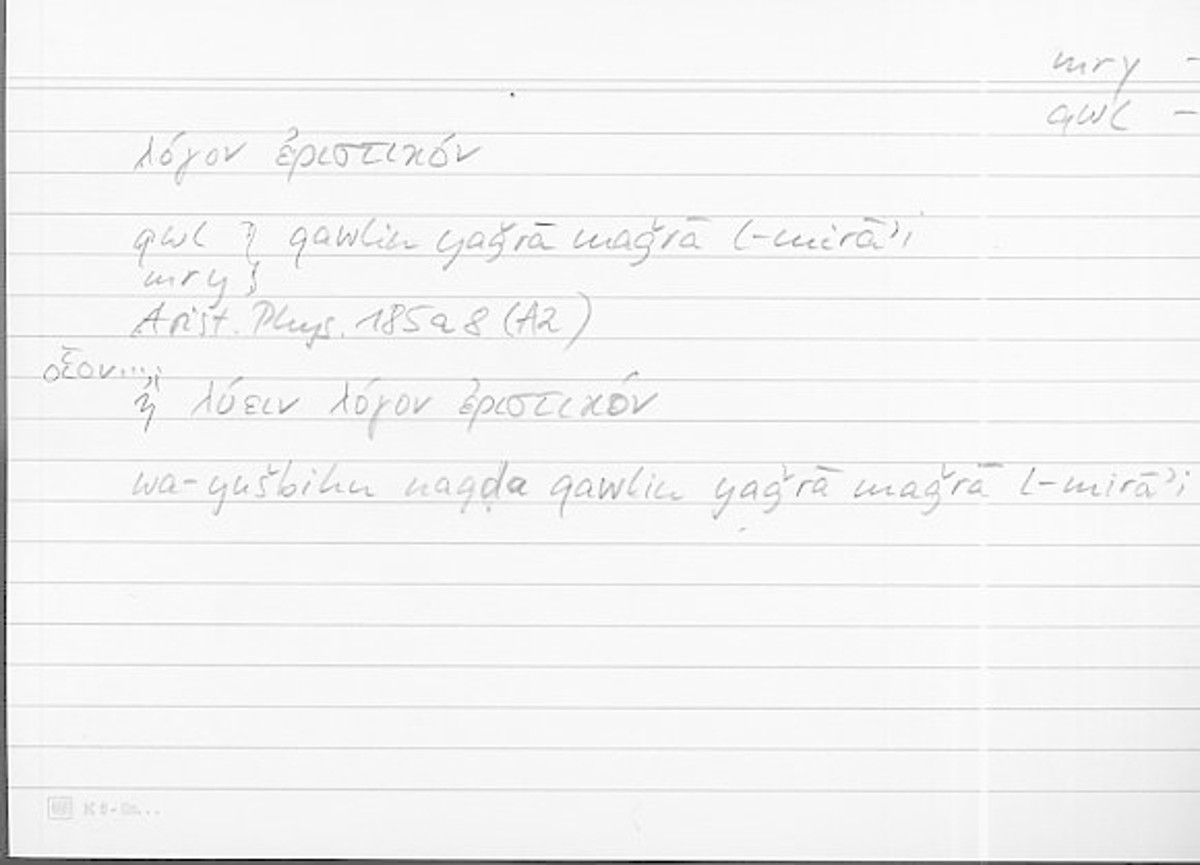 mry -
qwl -
λόγον ἐριστικόν
qwl } qawlin yaǧrā maǧrā l-mirāʾi
mry }
Arist. Phys. 185a8 (A2)
οἷον...
ἢ λύειν λόγον ἐριστικόν
wa-yušbihu naqḍa qawlin yaǧrā maǧrā l-mirāʾi